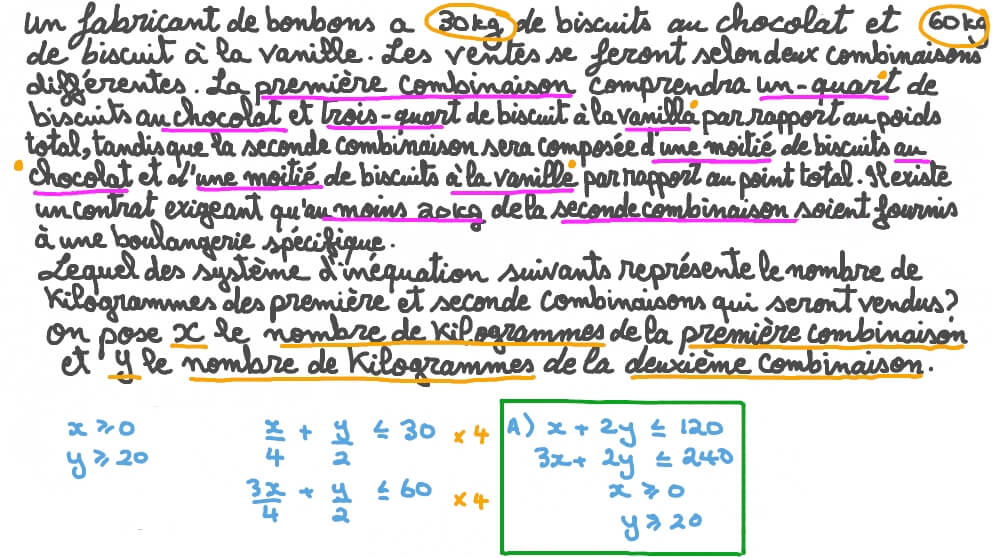 Un fabricant de bonbons a 30kg de biscuits au chocolat et 60kg
de biscuit à la vanille. Les ventes se feront selon deux combinaisons
différentes. La première combinaison comprendra un-quart de
biscuits au chocolat et trois-quart de biscuit à la vanille par rapport au poids
total, tandis que la seconde combinaison sera composée d'une moitié de biscuits au
chocolat et d'une moitié de biscuits à la vanille par rapport au point total. Il existe
un contrat exigeant qu'au moins 20kg de la seconde combinaison soient fournis
à une boulangerie spécifique.
Lequel des système d'inéquation suivants représente le nombre de
Kilogrammes des première et seconde combinaisons qui seront vendus?
On pose x le nombre de Kilogrammes de la première combinaison
et y le nombre de Kilogrammes de la deuxième combinaison.
x ⩾ 0
y ⩾ 20
x/4 + y/2 ≤ 30 × 4
3x/4 + y/2 ≤ 60 × 4
A) x + 2y ≤ 120
3x + 2y ≤ 240
x ⩾ 0
y ⩾ 20